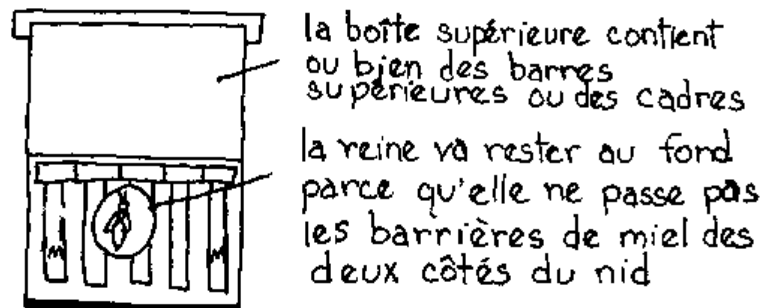 la boîte supérieure contient
ou bien des barres
supérieures ou des cadres
la reine va rester au fond
parce qu'elle ne passe pas
les barrières de miel des
deux côtés du nid
M M